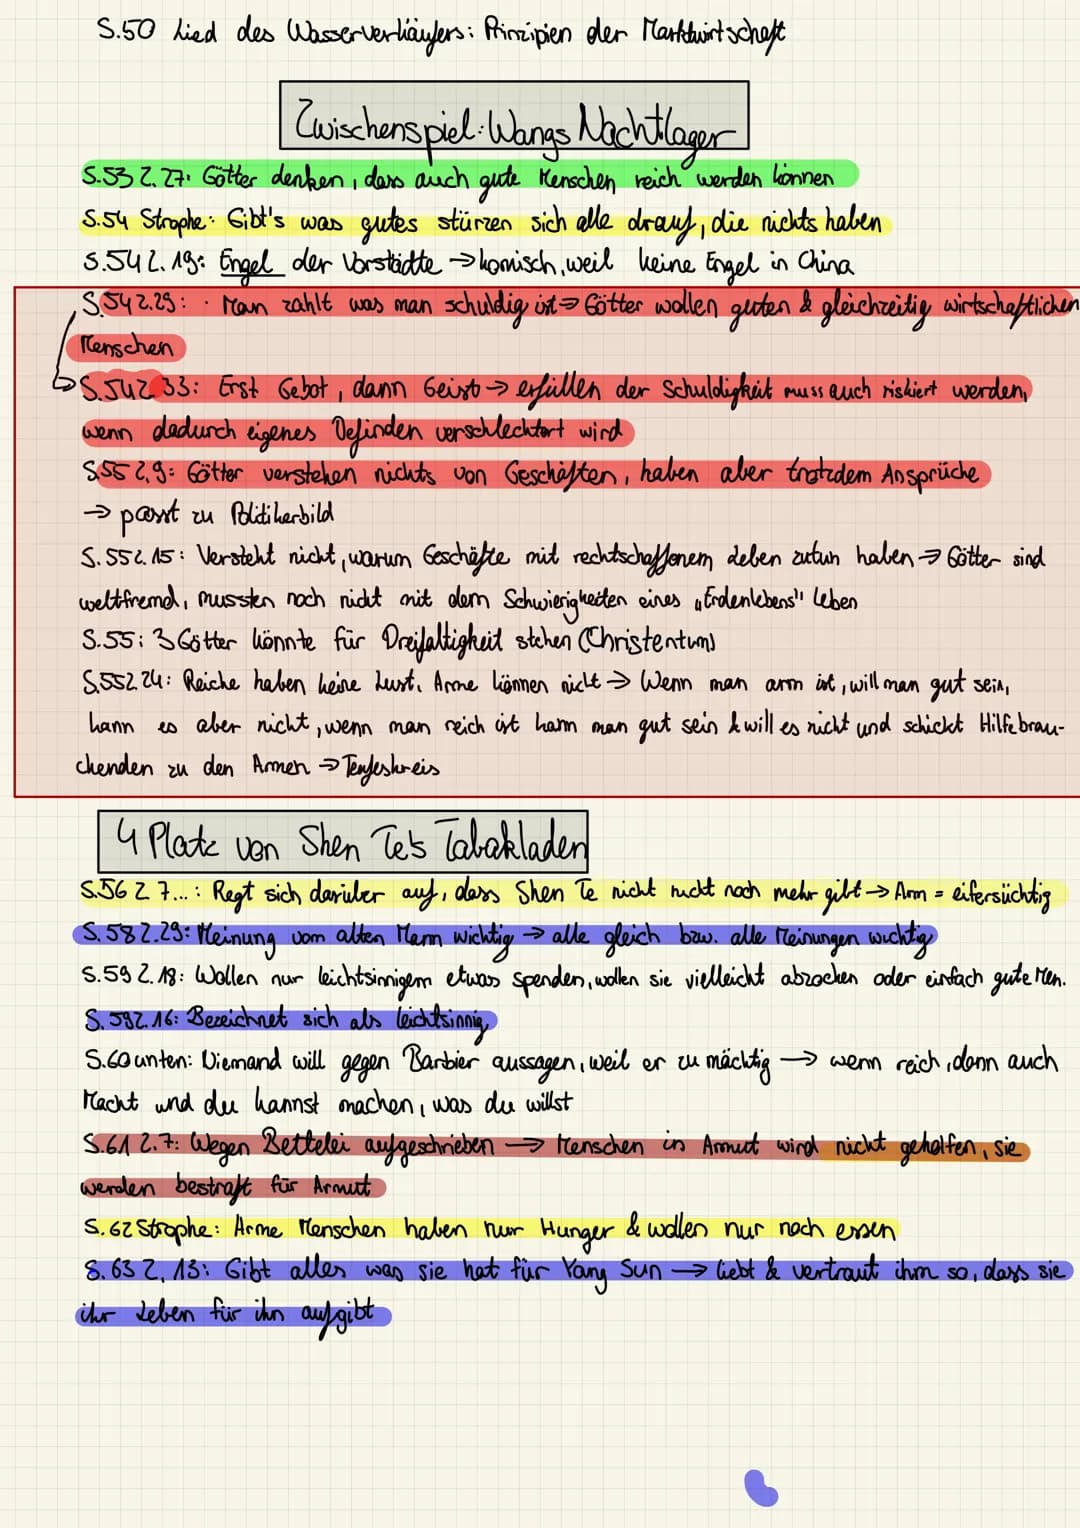 S.50 Lied des Wasserverkäufers: Prinzipien der Marktwirtschaft
Zwischenspiel: Wangs Nachtlager
S.53 Z.27: Götter denken, dass auch gute Menschen reich werden können
S.54 Strophe: Gibt's was gutes stürzen sich alle drauf, die nichts haben
S.54 Z.19: Engel der Vorstädte → komisch, weil keine Engel in China
S.54 Z.29: Man zahlt was man schuldig ist ⇒ Götter wollen guten & gleichzeitig wirtschaftlichen
Menschen
S.54 Z.33: Erst Gebot, dann Geist → erfüllen der Schuldigkeit muss auch riskiert werden,
wenn dadurch eigenes Befinden verschlechtert wird
S.55 Z.9: Götter verstehen nichts von Geschäften, haben aber trotzdem Ansprüche
→ passt zu Politikerbild
S.55 Z.15: Versteht nicht, warum Geschäfte mit rechtschaffenem Leben zutun haben → Götter sind
weltfremd, mussten noch nicht mit dem Schwierigkeiten eines „Erdenlebens" leben
S.55: 3 Götter könnte für Dreifaltigkeit stehen (Christentum)
S.55 Z.24: Reiche haben keine Lust, Arme können nicht → Wenn man arm ist, will man gut sein,
kann es aber nicht, wenn man reich ist kann man gut sein & will es nicht und schickt Hilfebrau-
chenden zu den Armen → Teufeskreis
4 Platz von Shen Te's Tabakladen
S.56 Z 7...: Regt sich darüber auf, dass Shen Te nicht nicht noch mehr gibt → Arm = eifersüchtig
S.58 Z.29: Meinung vom alten Mann wichtig → alle gleich bzw. alle Meinungen wichtig
S.59 Z.18: Wollen nur leichtsinnigem etwas spenden, wollen sie vielleicht abzocken oder einfach gute Men.
S.59 Z.16: Bezeichnet sich als leichtsinnig
S.60 unten: Niemand will gegen Barbier aussagen, weil er zu mächtig → wenn reich, dann auch
Macht und du kannst machen, was du willst
S.61 Z.7: Wegen Bettelei aufgeschrieben → Menschen in Armut wird nicht geholfen, sie
werden bestraft für Armut
S.62 Strophe: Arme Menschen haben nur Hunger & wollen nur noch essen
S.63 Z.13: Gibt alles was sie hat für Yang Sun → liebt & vertraut ihm so, dass sie
ihr Leben für ihn aufgibt